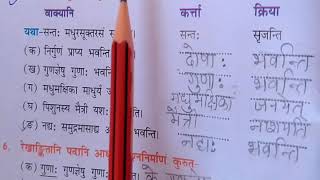 वाक्यानि कर्त्ता क्रिया
यथा- सन्तः मधुरसूक्तरसं सन्तः सृजन्ति
(क) निर्गुणं प्राप्य भवन्ति दोषाः भवन्ति
(ख) गुणज्ञेषु गुणाः गुणाः भवन्ति
(ग) मधुमक्षिका माधुर्यं मधुमक्षिका
(घ) पिशुनस्य मैत्री यशः मैत्री
(ङ) नद्यः समुद्रमासाद्य भवन्ति। नद्यः भवन्ति
6. रेखाङ्कितानि पदानि कुरुत-
(क) गुणाः गुणज्ञेषु गुणाः के